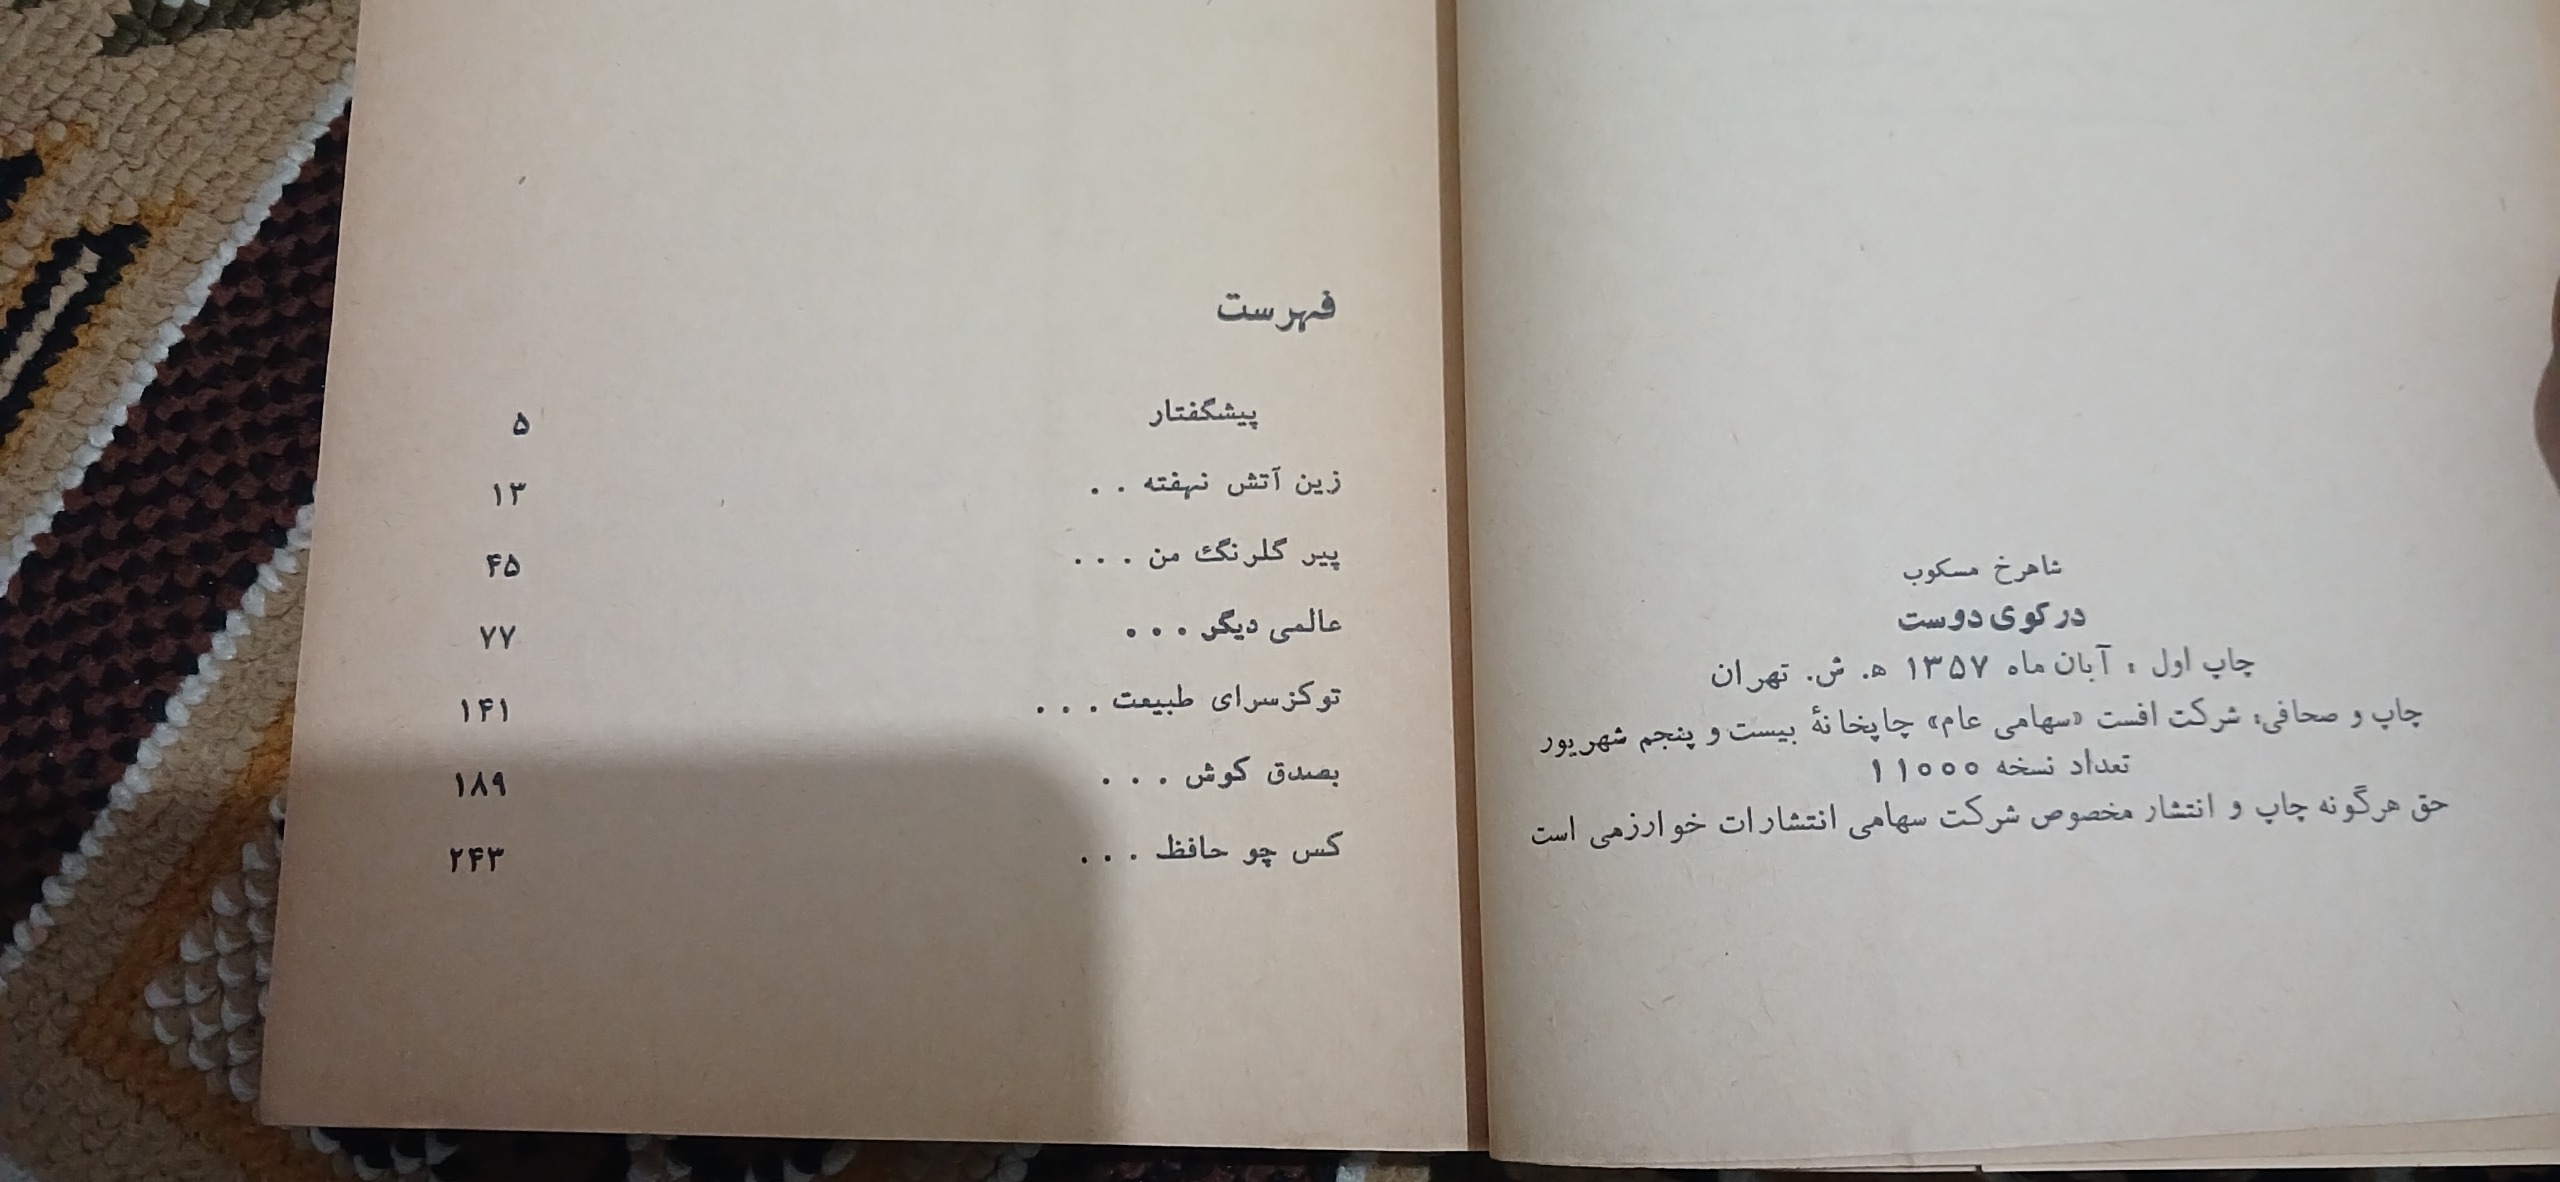 شاهرخ مسکوب
در کوی دوست
چاپ اول : آبان ماه ۱۳۵۷ ه‍. ش. تهران
چاپ و صحافی: شرکت افست «سهامی عام» چاپخانهٔ بیست و پنجم شهریور
تعداد نسخه ۱۱۰۰۰
حق هرگونه چاپ و انتشار مخصوص شرکت سهامی انتشارات خوارزمی است
فهرست
پیشگفتار ۵
زین آتش نهفته . . ۱۳
پیر گلرنگ من . . . ۴۵
عالمی دیگر . . . ۷۷
توکزسرای طبیعت . . . ۱۴۱
بصدق کوش . . . ۱۸۹
کس چو حافظ . . . ۲۴۳